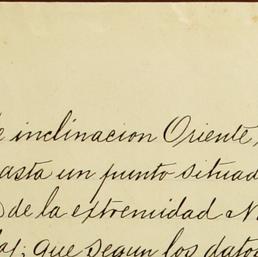 inclinacion Oriente,
asta un punto situad
de la extremidad N
que segun los datos